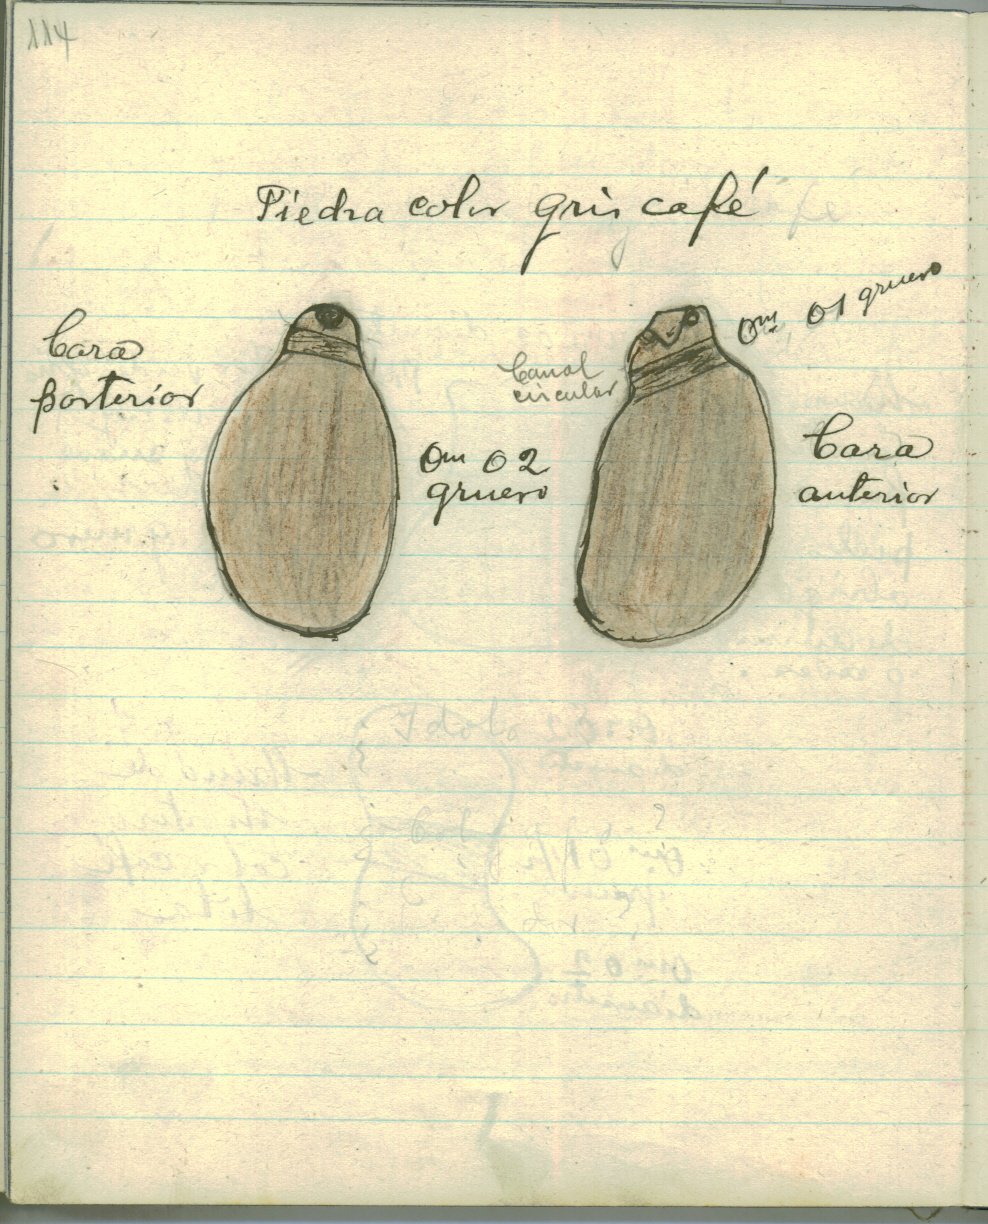 114
Piedra color gris café
Cara
posterior
0m 02
grueso
Canal
circular
0m, 01 grueso
Cara
anterior